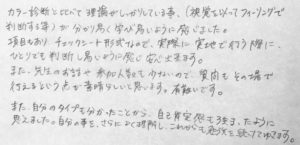 カラー診断といって理論がしっかりしている事、(視覚をもってフィーリングで
判断する等)が分かり易く学び易いように感じました。
項目もありチェックシート形式なので、実際に実地で行う際に、
ひとりでも判断し易いように感じ安心出来ます。
また、先生のお話や参加人数も少ないので、質問もその場で
行えるという点が素晴らしいと思います。有難いです。
また、自分のタイプも分かったことから、自己肯定感も増えたように
思えました。自分の事を、さらによく理解し、これからも色々続けてゆきます。